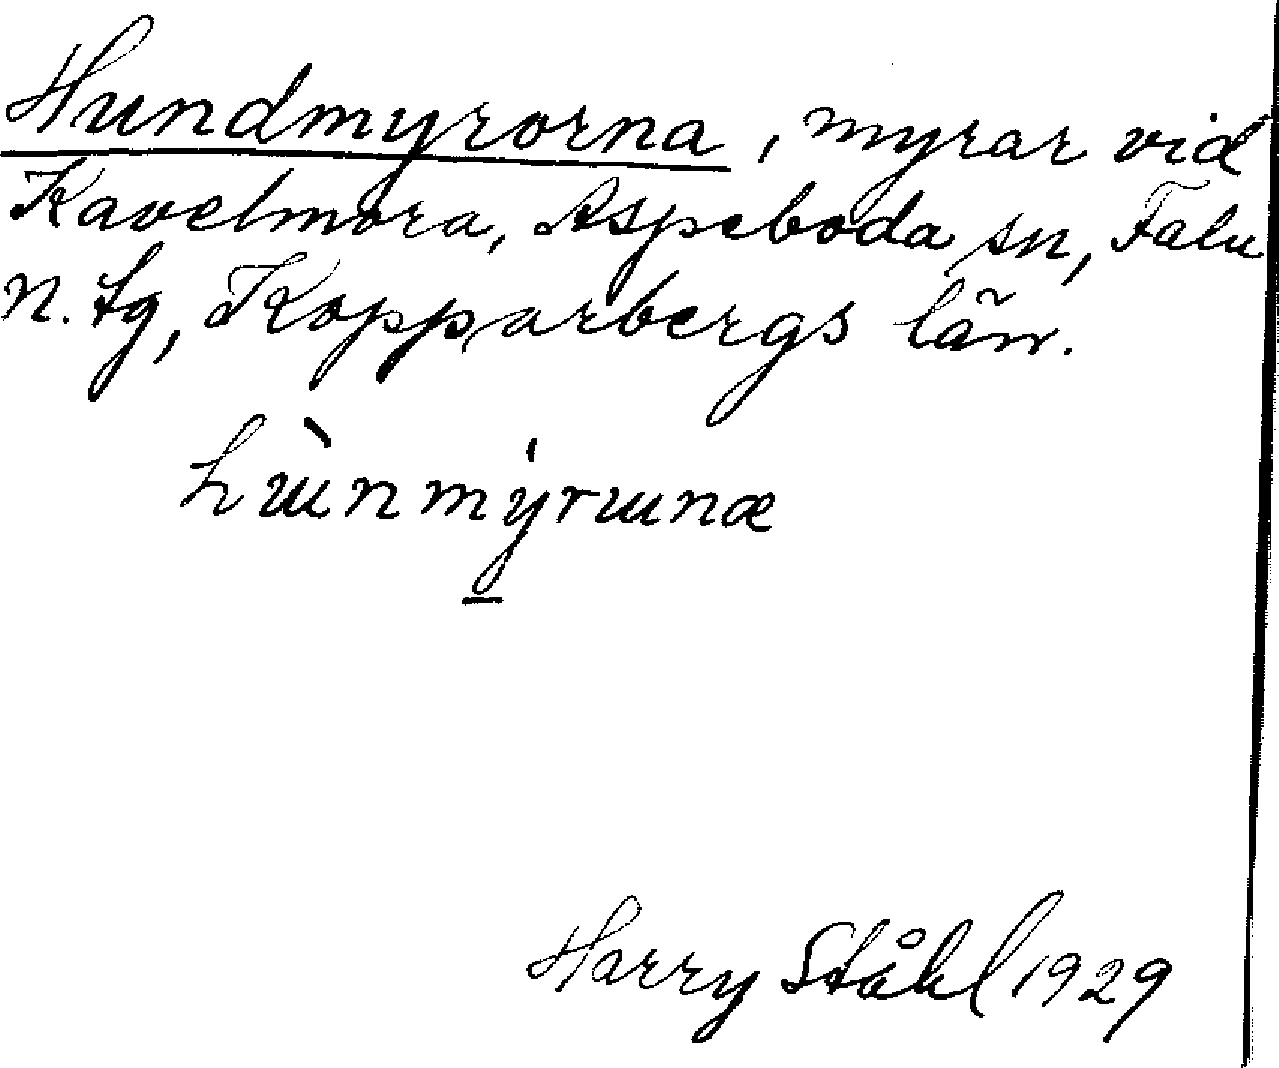 Hundmyrorna, myrar vid
Kavelmora, Aspeboda sn, Falu
n. tg, Kopparbergs län.
hɯ̀nmýrɯnæ
Harry Ståhl 1929